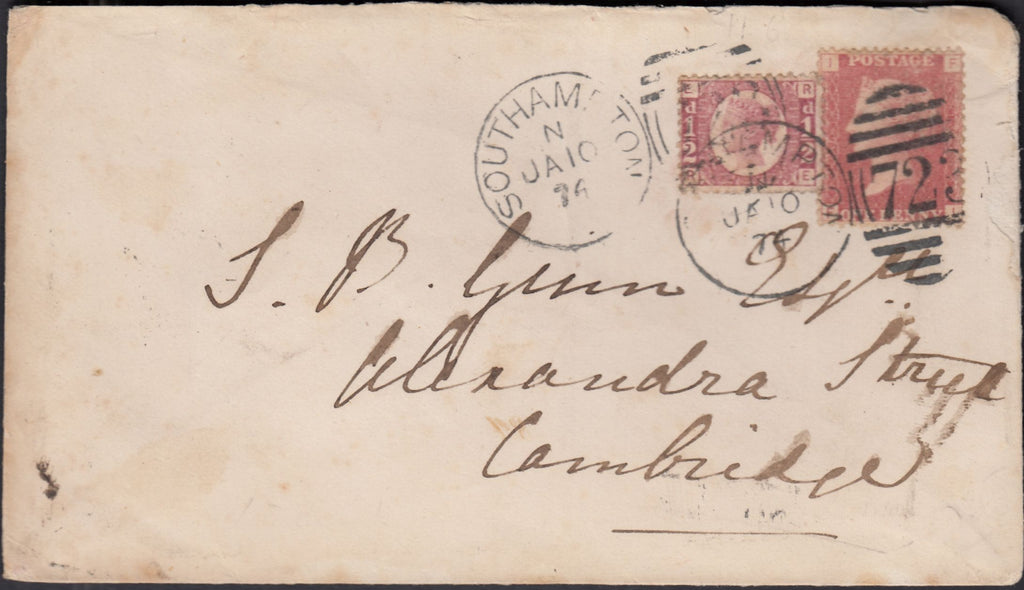 SOUTHAMPTON
N
JA 10
74
E R
d1/2
I F
POSTAGE
ONE PENNY
723
SOUTHAMPTON
N
JA 10
74
S. B. Gunn Esqre
Alexandra Street
Cambridge